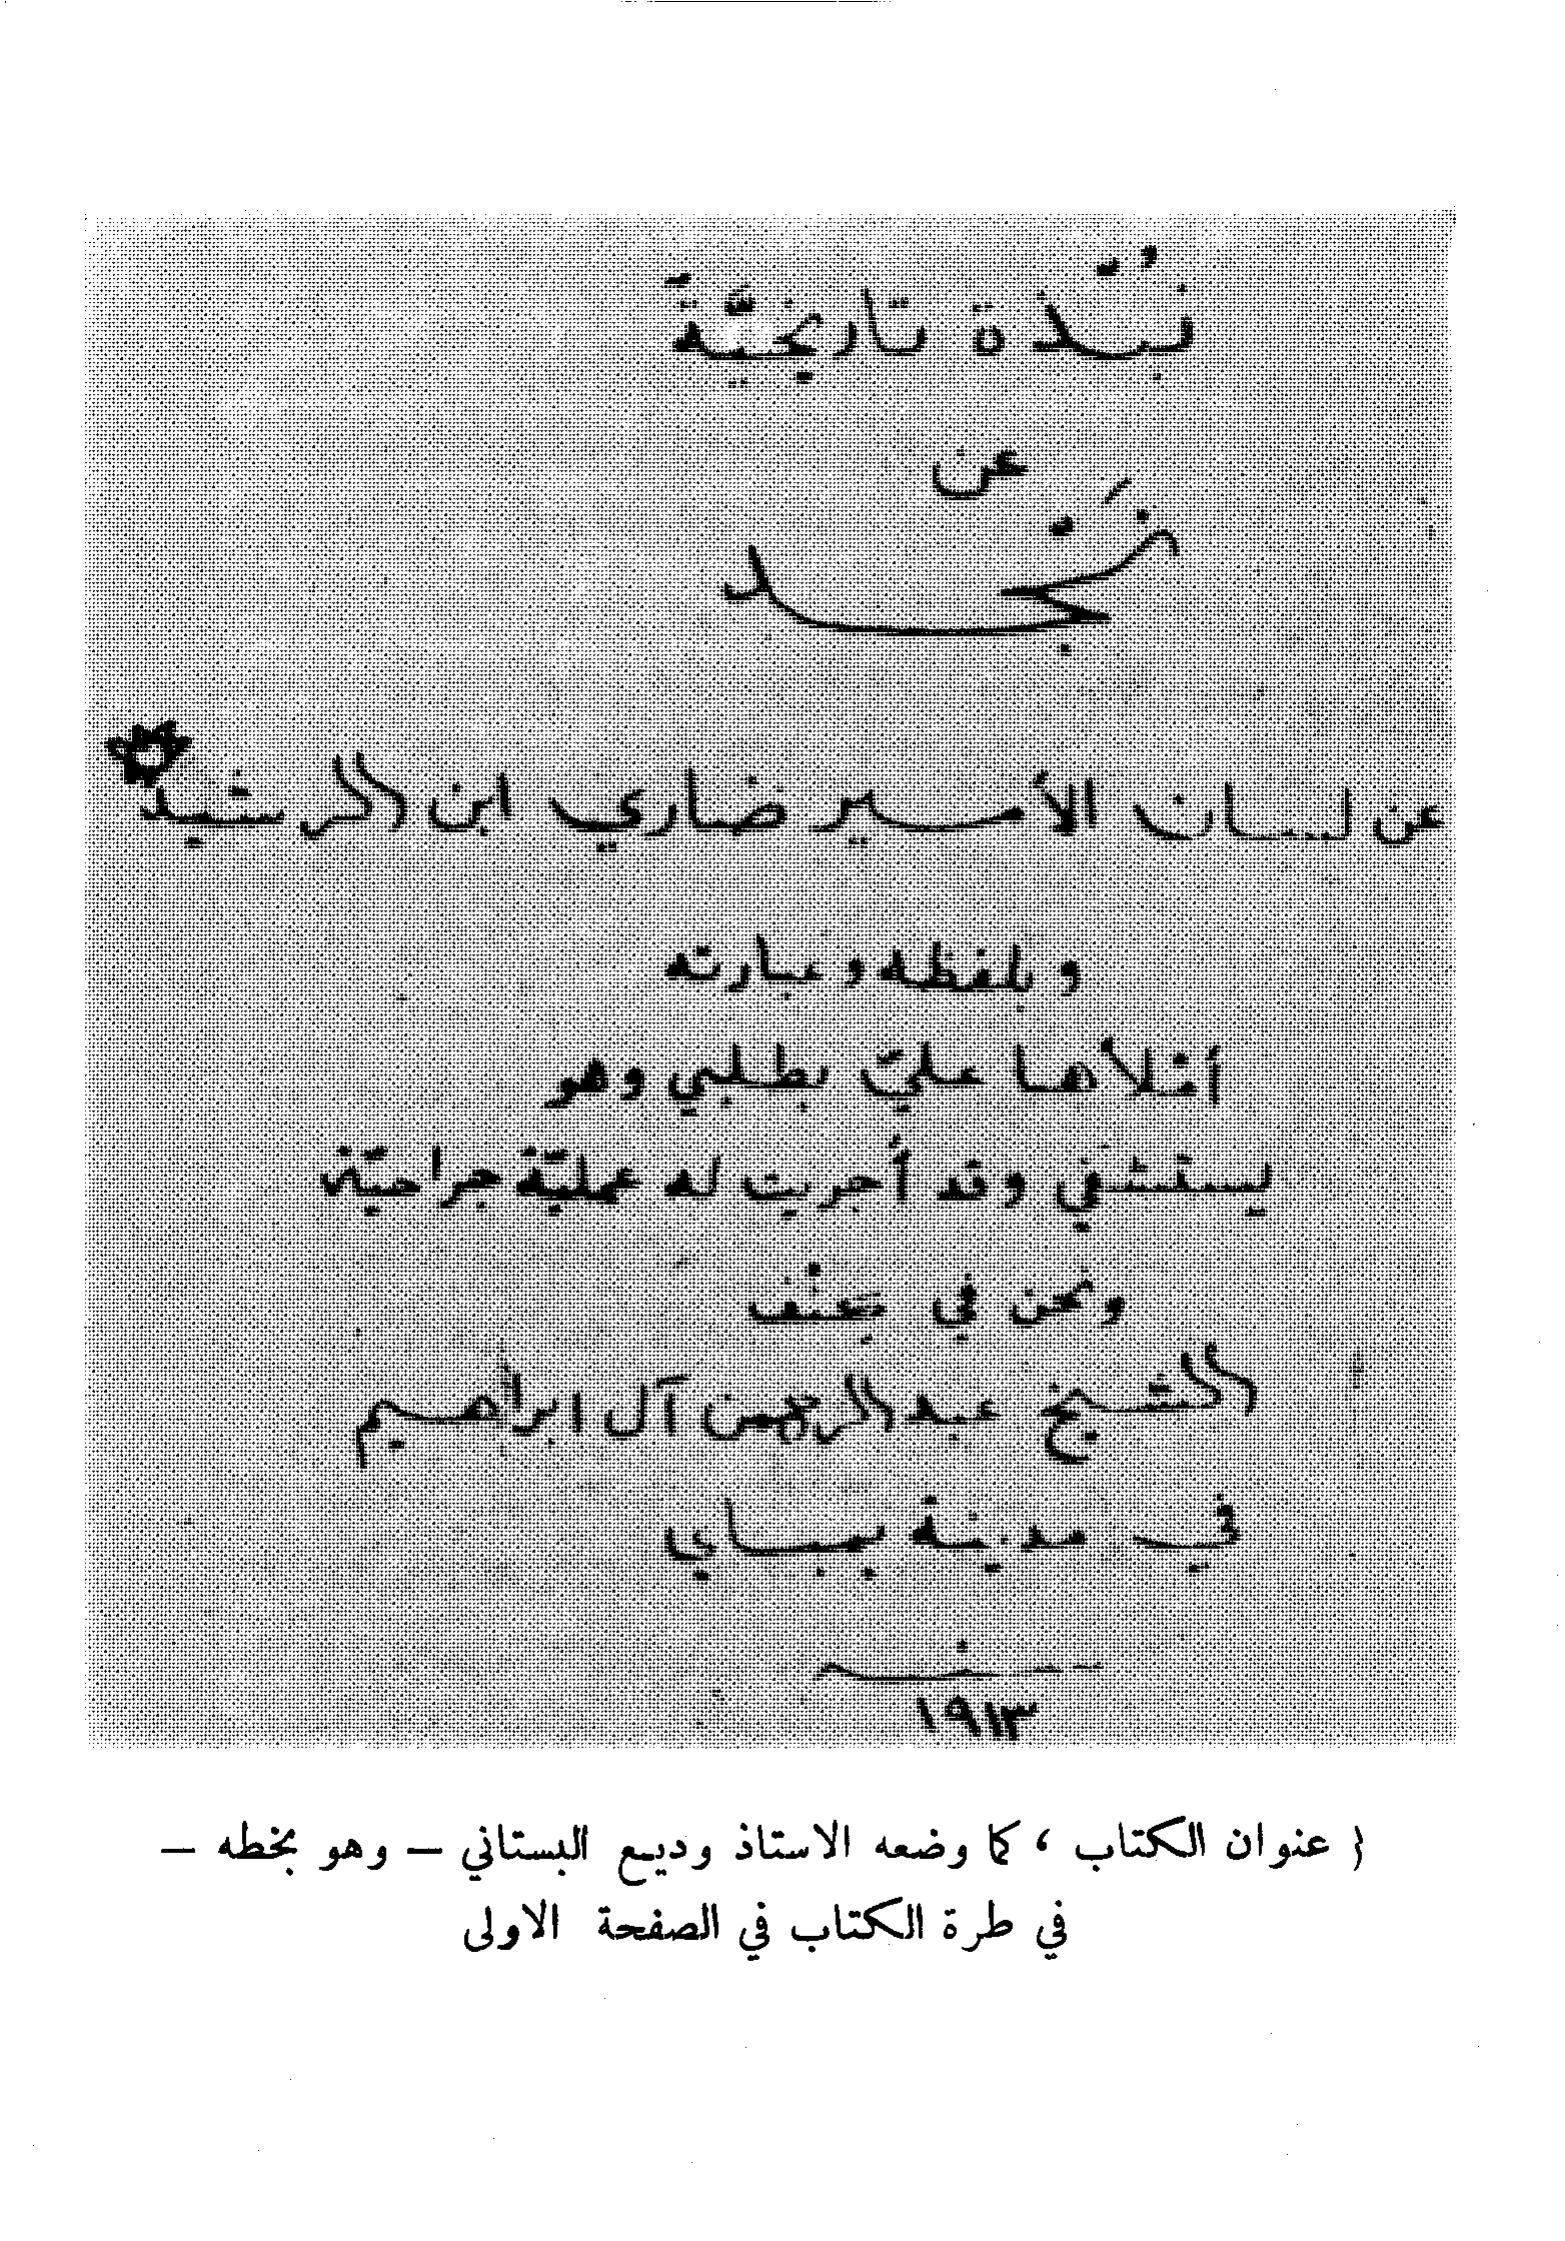 نُبْذة تاريخيّة
عن
نَجْد
عن لسان الأمير ضاري ابن الرشيد
وبلفظه وعبارته
أملأها عليّ بطلبي وهو
يستشفي وقد أجريت له عمليّة جراحيّة
ونحن في
الشيخ عبد الرحمن آل ابراهيم
في مدينة بمباي
سنة
١٩١٣
{ عنوان الكتاب ، كما وضعه الاستاذ وديع البستاني – وهو بخطه –
في طرة الكتاب في الصفحة الاولى